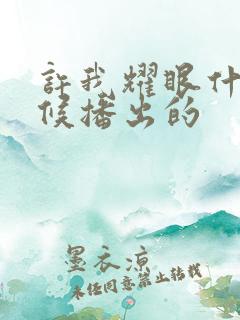 許我耀眼什
候播出的
墨衣凉
未经同意禁止转载